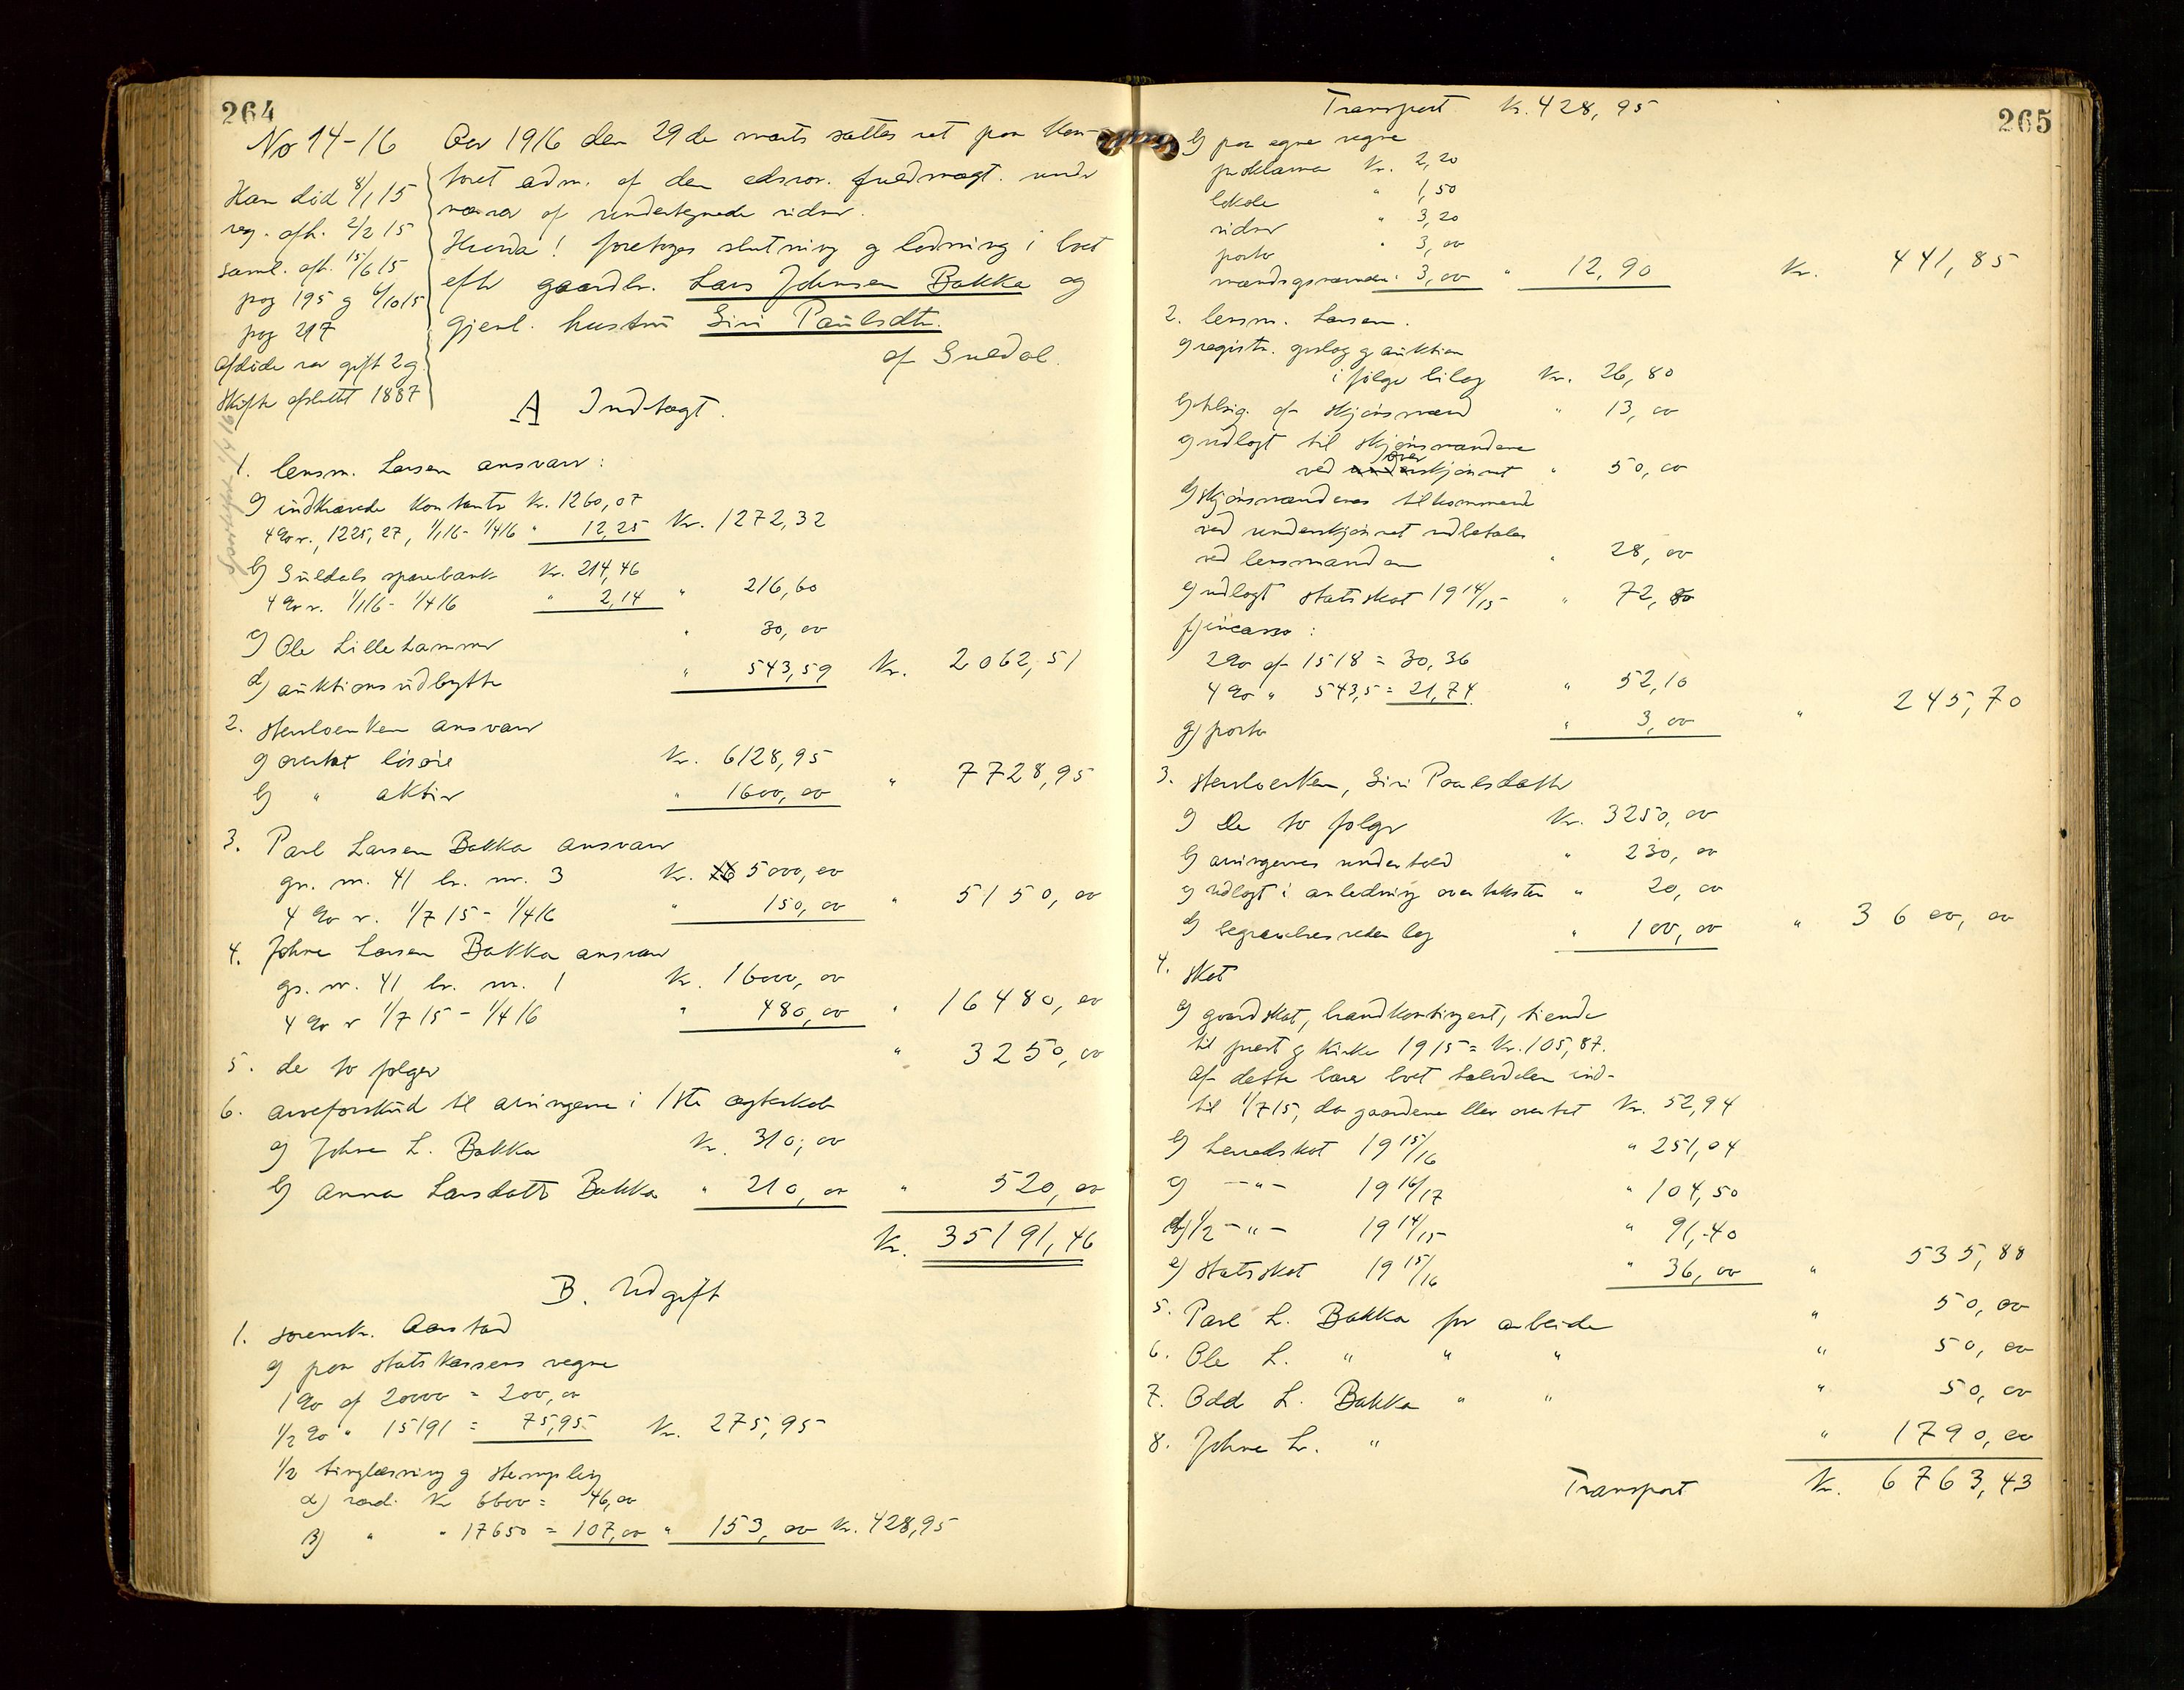 264
No 14-16 Aar 1916 den 29de marts sattes ret paa kon-
toret adm. af den edsvor. fuldmægt. under
nærvær af undertegnede vidner.
Hvorda! foretoges slutning og lodning i boet
efter gaardbr. Lars Johnsen Bakka og
gjenl. hustru Siri Paulsdtr.
af Suldal.
Han död 8/1 15
reg. afh. 2/2 15
saml. afh. 15/6 15
pag 195 g 6/10 15
pag 217
Afdöde var gift 2 g.
Skifte afsluttet 1887
A Indtægt.
1. lensm. Larsen ansvarer:
a) indkrævede kontanter Kr. 1260,07
4 % r. 1225,27, 1/1 16 - 1/4 16 " 12,25 Kr. 1272,32
b) Suldals sparebank Kr. 214,46
4 % r. 1/1 16 - 1/4 16 " 2,14 " 216,60
c) Ole Lillehammer " 30,00
d) auktionsudbytte " 543,59 Kr. 2062,51
2. Stervboenken ansvarer
a) overtat lösöre Kr. 6128,95
b) " aktiver " 1600,00 " 7728,95
3. Paul Larsen Bakka ansvarer
gr. nr. 41 br. nr. 3 Kr. 5000,00
4 % r. 1/7 15 - 1/4 16 " 150,00 " 5150,00
4. Johne Larsen Bakka ansvarer
gr. nr. 41 br. nr. 1 Kr. 16000,00
4 % r 1/7 15 - 1/4 16 " 480,00 " 16480,00
5. de to folger " 3250,00
6. arveforskud til arvingerne i 1ste ægteskab
a) Johne L. Bakka Kr. 310,00
b) Anna Larsdatter Bakka " 210,00 " 520,00
Kr. 35191,46
B. Udgift
1. sorensk. Aarstad
a) paa statskassens vegne
1 % af 20000 = 200,00
1/2 % " 15191 = 75,95 Kr. 275,95
1/2 tinglæsning g stempling
α) værdi Kr 6600 = 46,00
β) " " 17650 = 107,00 " 153,00 Kr. 428,95
265
Transport Kr. 428,95
b) paa egne vegne
proklama Kr. 2,20
lokale " 1,50
vidner " 3,20
porto " 3,00
" 3,00 " 12,90 Kr. 441,85
2. lensm. Larsen.
a) registr. g auktion
i følge bilag Kr. 26,80
b) tilsig. af skjönsmænd " 13,00
c) udlagt til skjönsmændene
ved over skjönnet " 50,00
d) skjönsmændenes tilkommende
ved underskjönnet udbetales
ved lensmanden " 28,00
e) udlagt statsskat 19 14/15 " 72,80
f) incasso:
2 % af 1518 = 30,36
4 % " 543,5 = 21,74 " 52,10
g) porto " 3,00 " 245,70
3. Stervboenken, Siri Paulsdatter
a) De to folger Kr. 3250,00
b) arvingernes underhold " 230,00
c) udlagt i anledning overtaksten " 20,00
d) begravelsesvederlag " 100,00 " 3600,00
4. Skat
a) gaardskat, brandkontingent, tiende
til prest g kirke 1915 = Kr. 105,87.
Af dette bærer boet halvdelen ind-
til 1/7 15, da gaardene blev overtat Kr. 52,94
b) herredsskat 19 15/16 " 251,04
c) - " - 19 16/17 " 104,50
d) 1/2 - " - 19 14/15 " 91,40
e) statsskat 19 15/16 " 36,00 " 535,88
5. Paul L. Bakka for arbeide " 50,00
6. Ole L. " " " " 50,00
7. Odd L. Bakka " " " 50,00
8. Johne L. " " 1790,00
Transport Kr. 6763,43